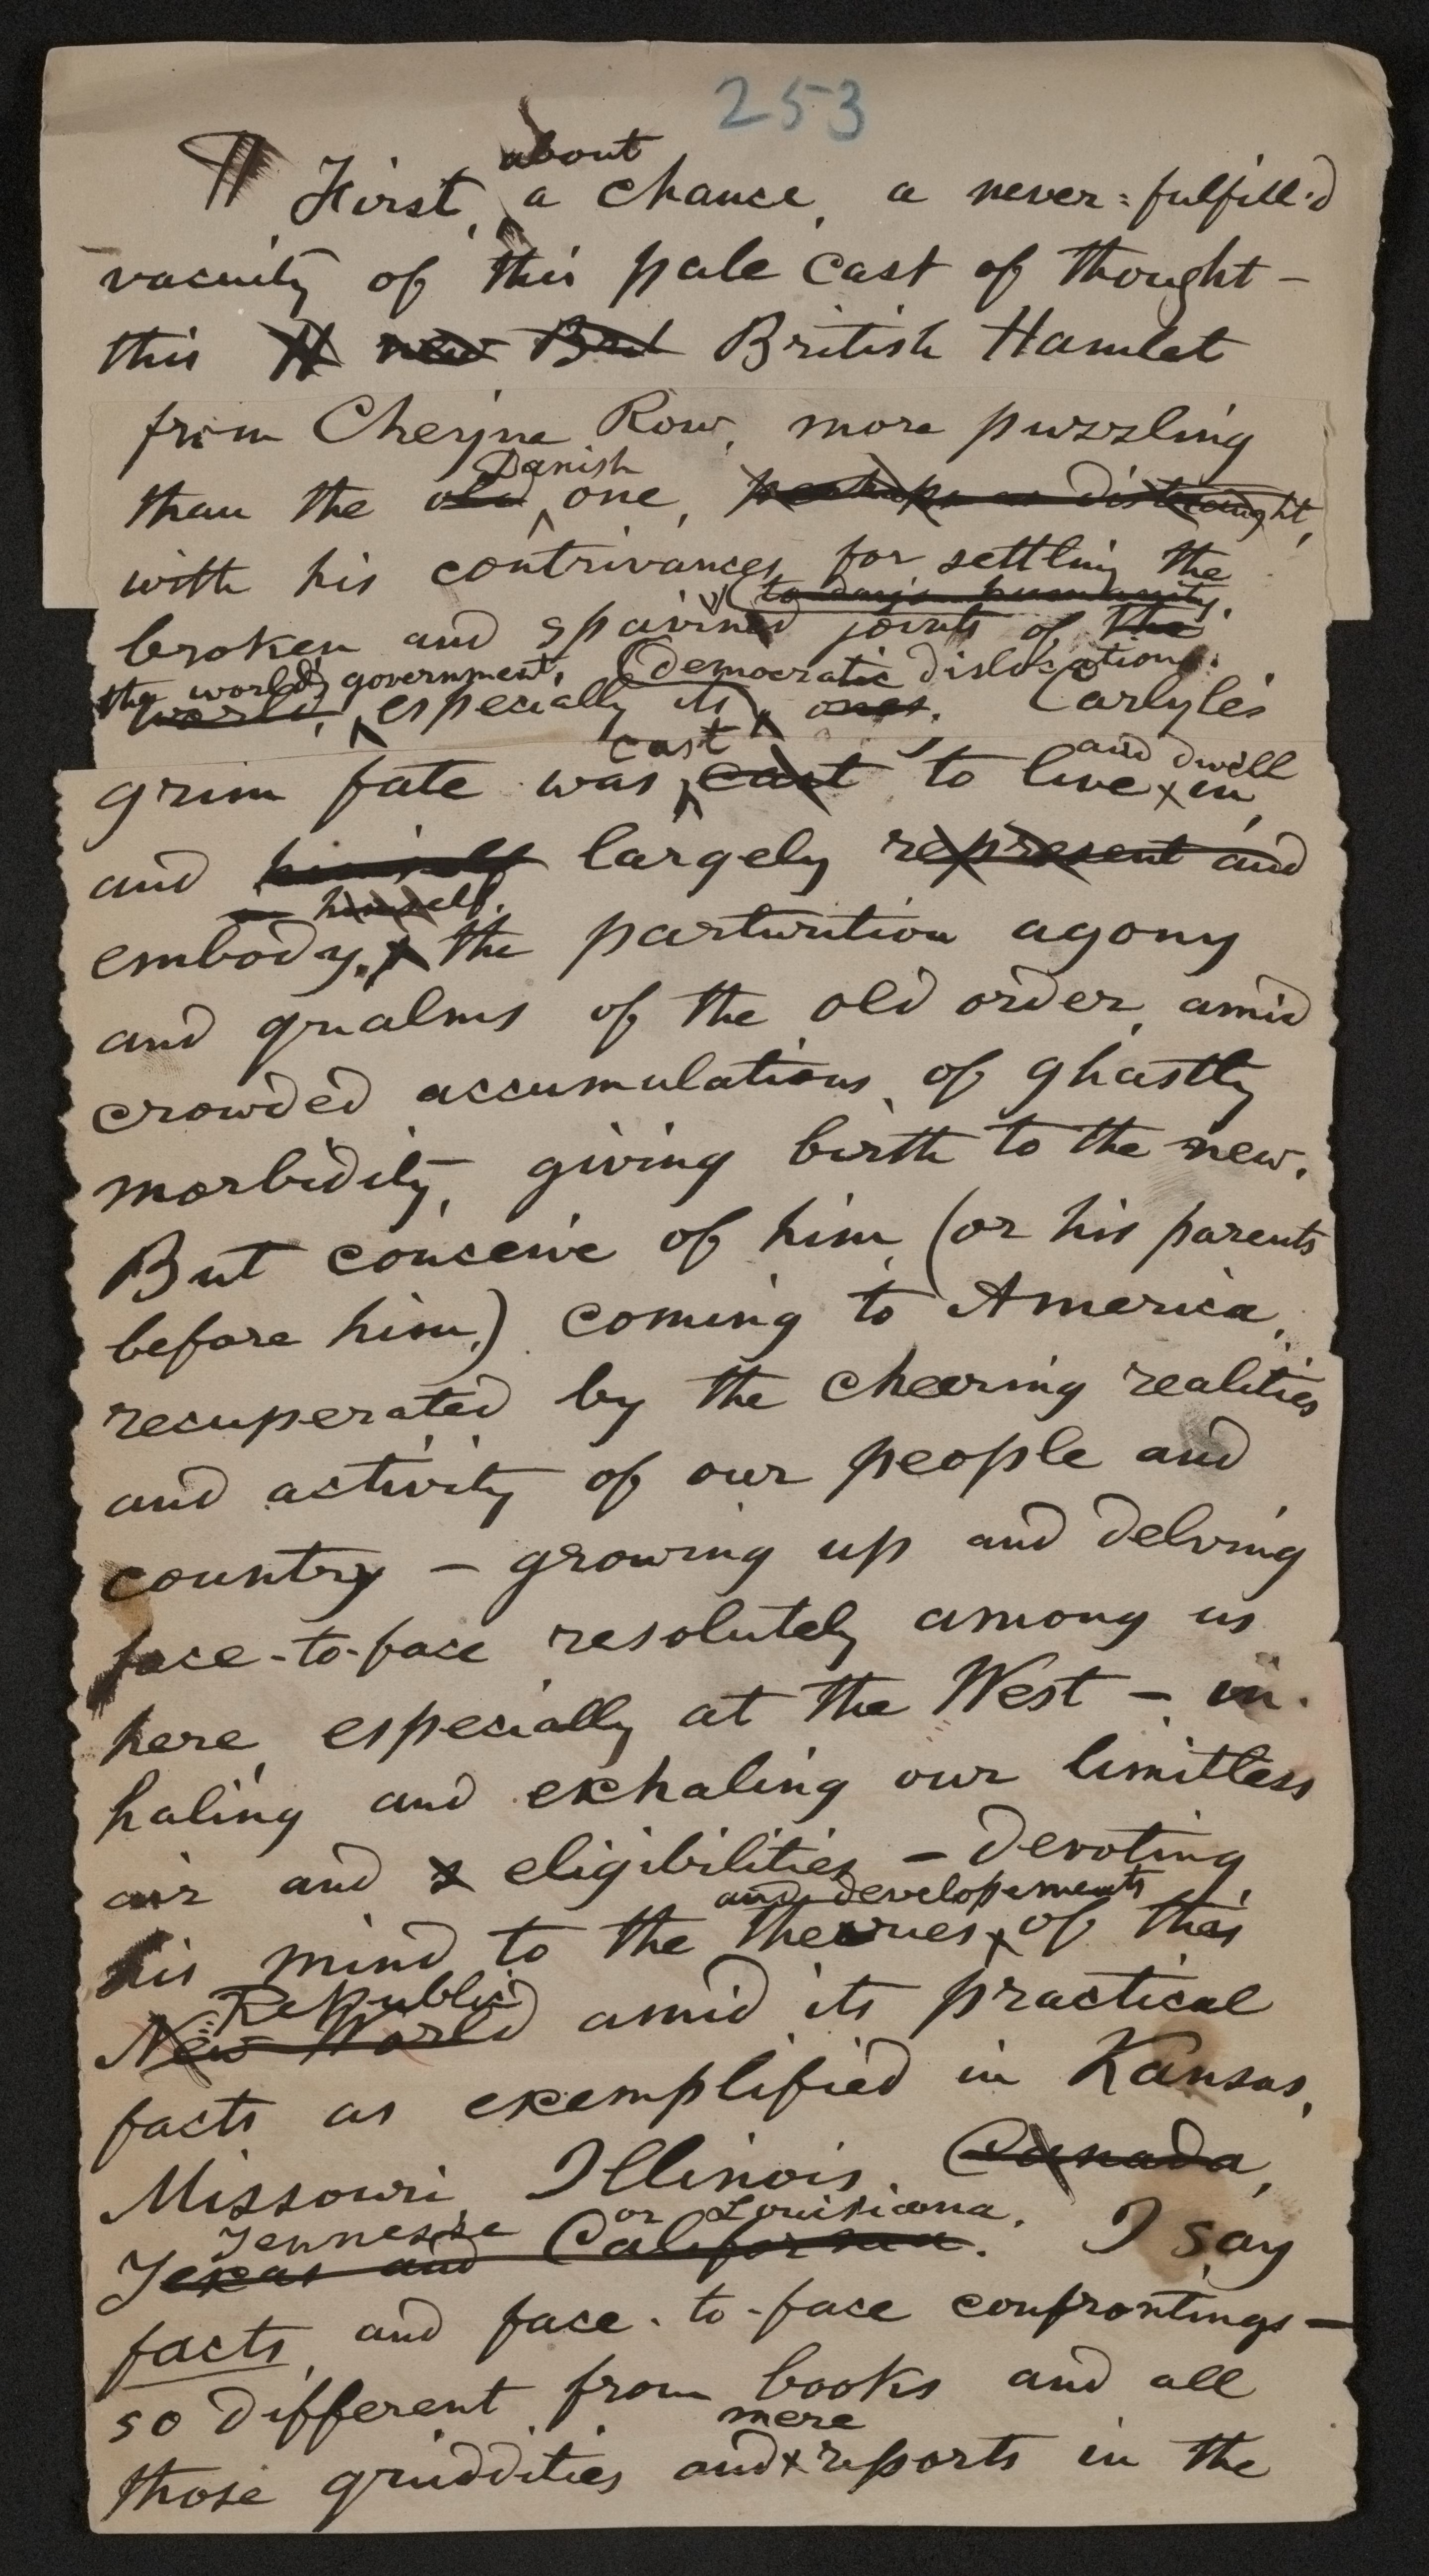 253
about
¶ First, a chance, a never-fulfill'd
vacuity of this pale cast of thought—
this H new Brit British Hamlet
from Cheyne Row, more puzzling
Danish
than the old one, perhaps as distraught,
with his contrivances for settling the
to-day's humanity,
broken and spavined joints of the
the world's government, democratic dislocations.
world, especially its ones. Carlyle's
cast and dwell
grim fate was cast to live in,
and himself largely represent and
in himself,
embody, the parturition agony
and qualms of the old order, amid
crowded accumulations of ghastly
morbidity, giving birth to the new.
But conceive of him (or his parents
before him,) coming to America,
recuperated by the cheering realities
and activity of our people and
country — growing up and delving
face-to-face resolutely among us
here, especially at the West — in-
haling and exhaling our limitless
air and eligibilities — devoting
and developements
his mind to the theories of this
Republic
New World amid its practical
facts as exemplified in Kansas,
Missouri, Illinois, Canada,
Tennessee or Louisiana.
Texas and California. I say
facts, and face-to-face confrontings —
so different from books and all
mere
those quiddities and reports in the